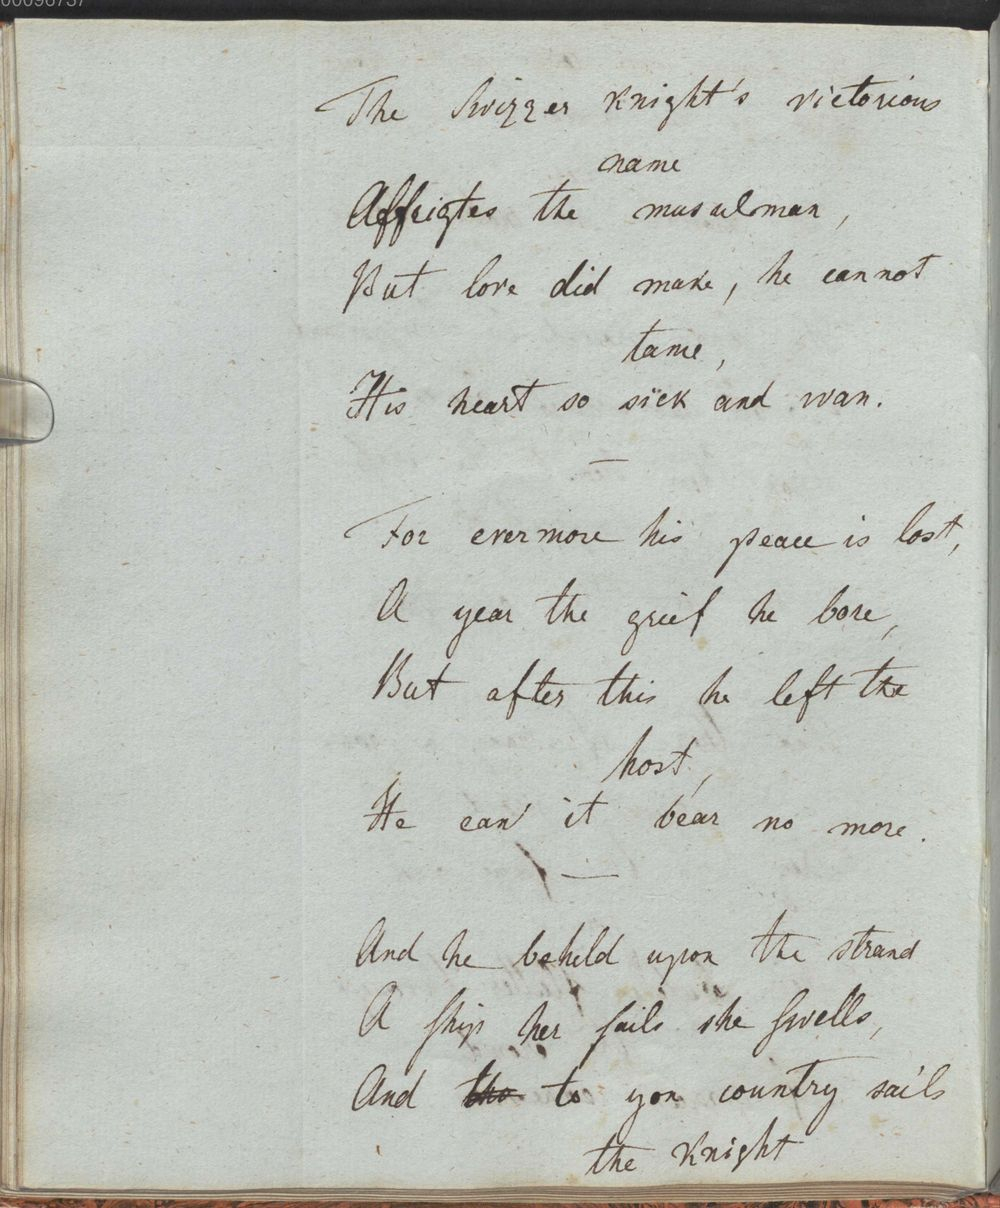 The Swizzer Knight's victorious
name
Affrigtes the musulman,
But love did make, he cannot
tame,
His heart so sick and wan.
For evermore his peace is lost,
A year the grief he bore,
But after this he left the
host,
He can' it bear no more.
And he beheld upon the strand
A ship her sails she swells,
And tho to yon country sails
the Knight